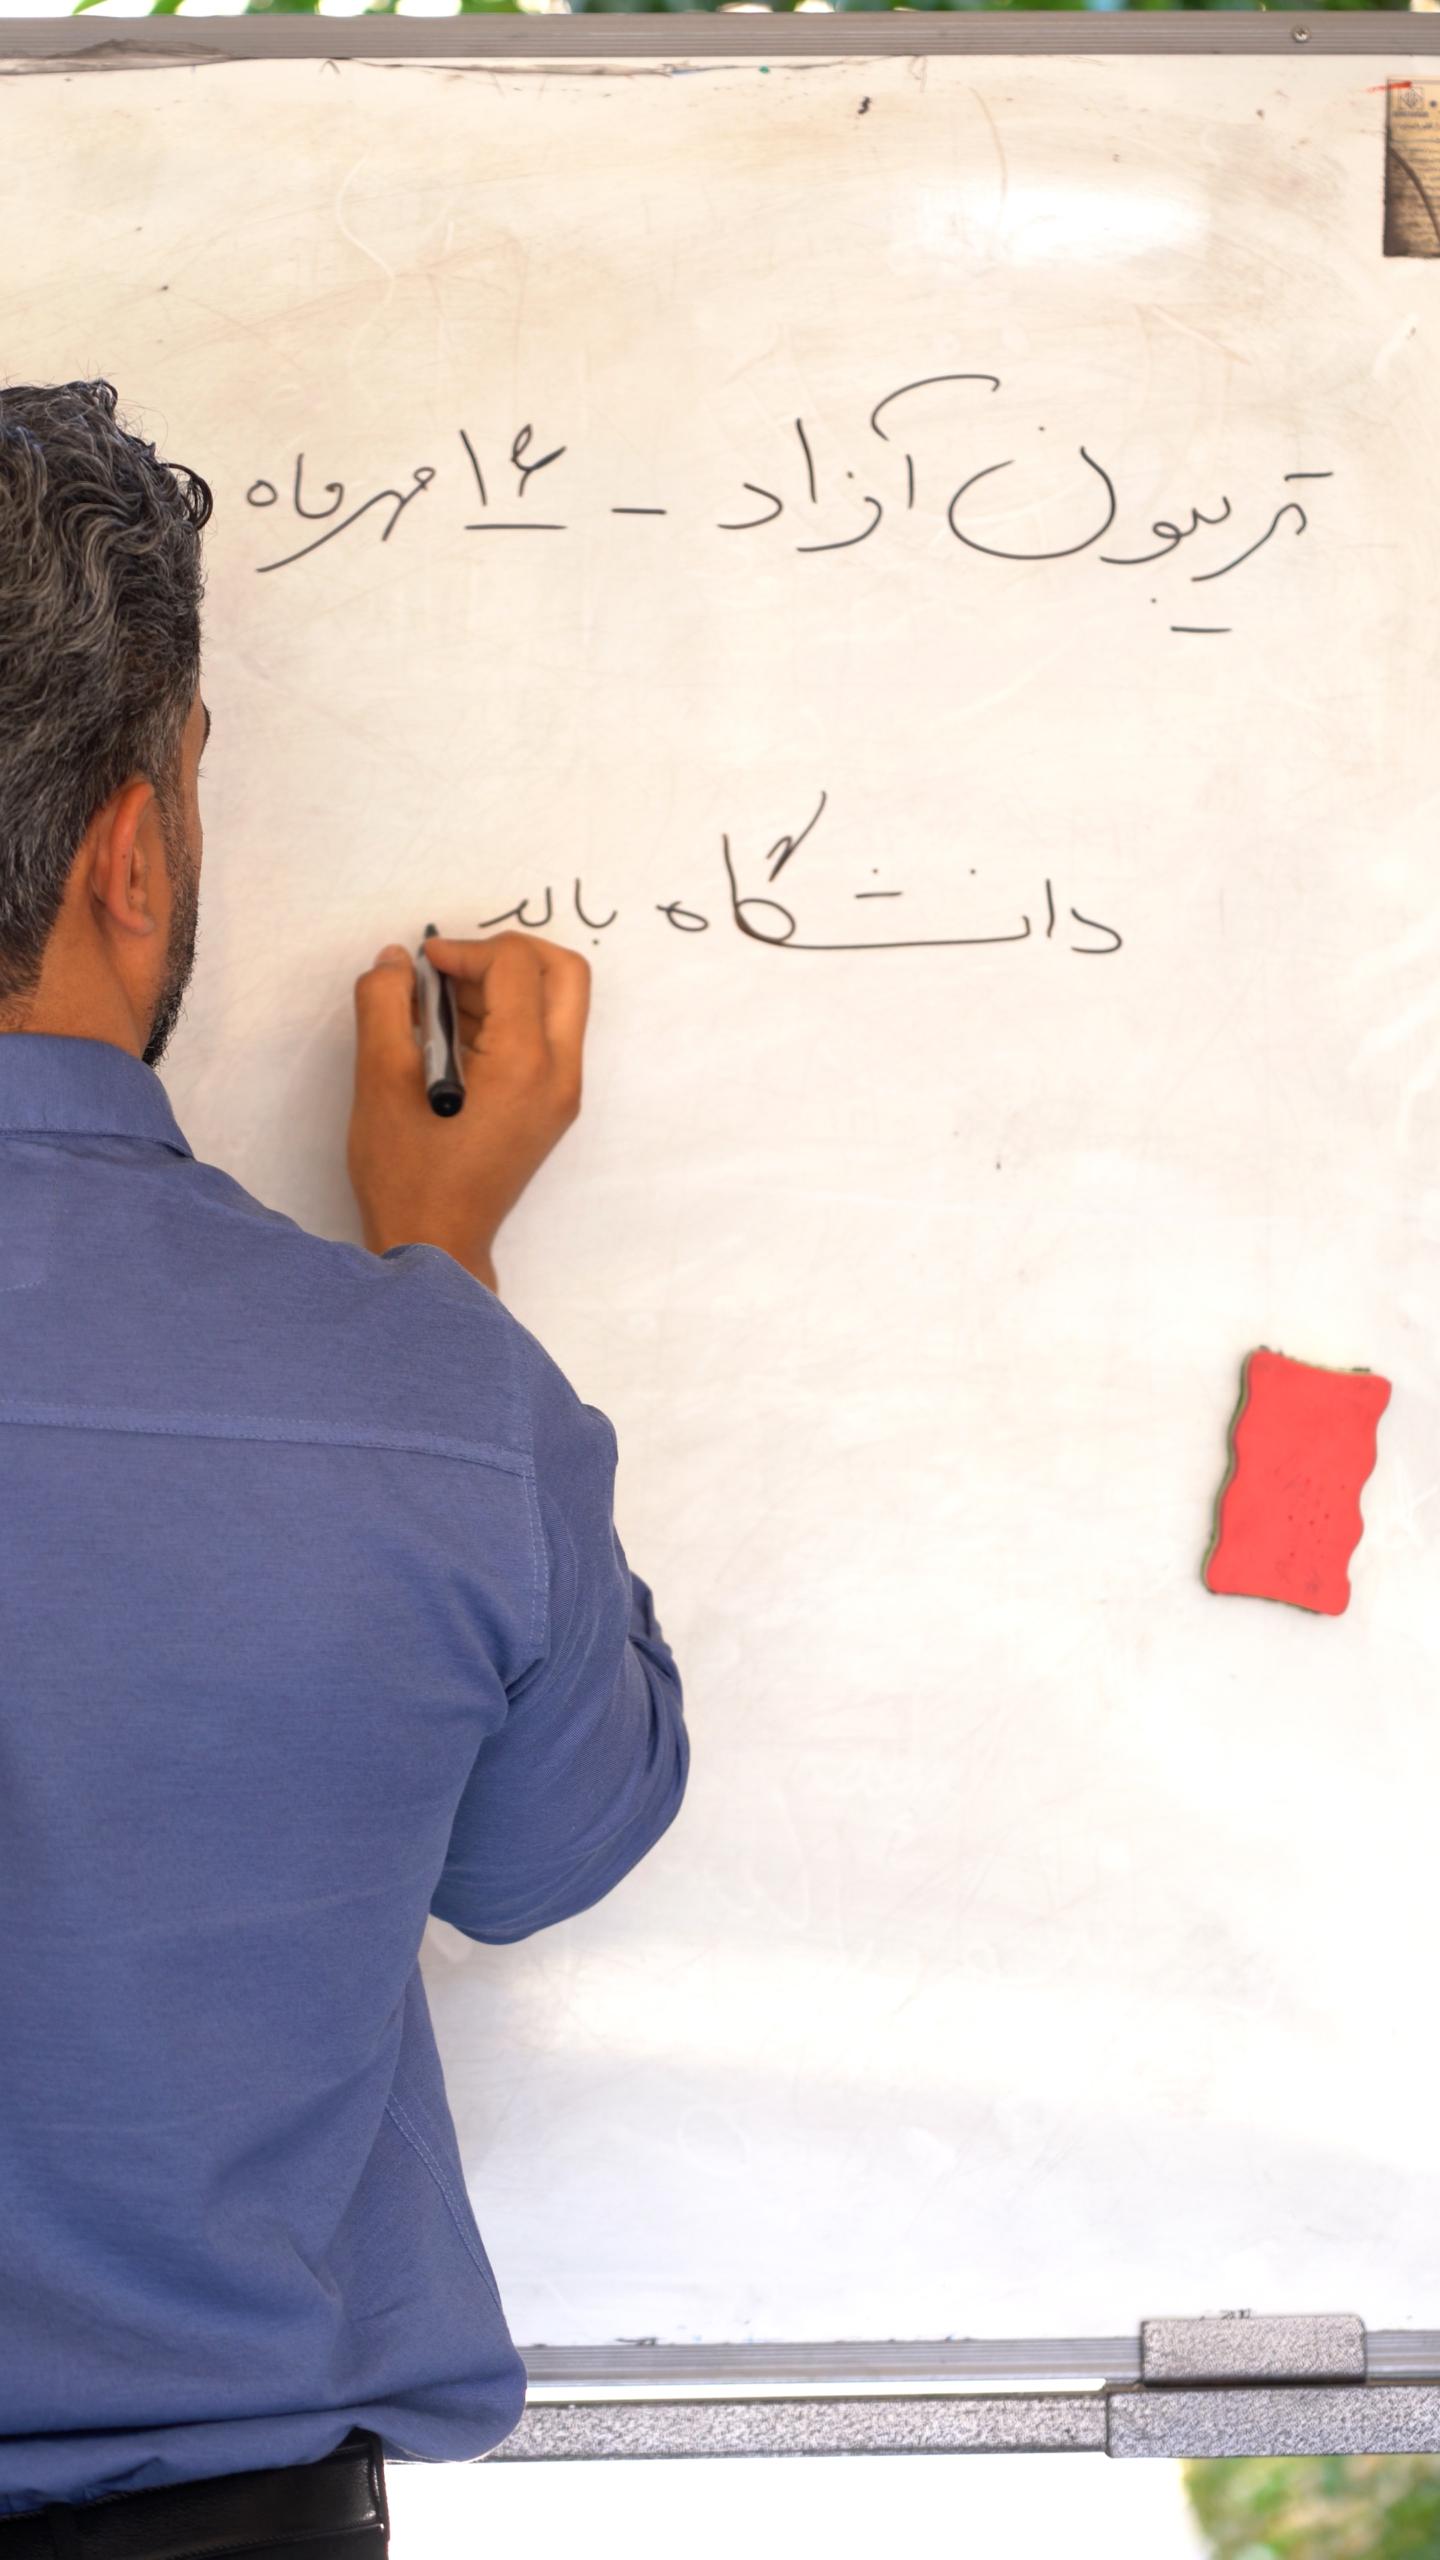 تریبون آزاد - ۱۶ مهرماه
دانشگاه باید